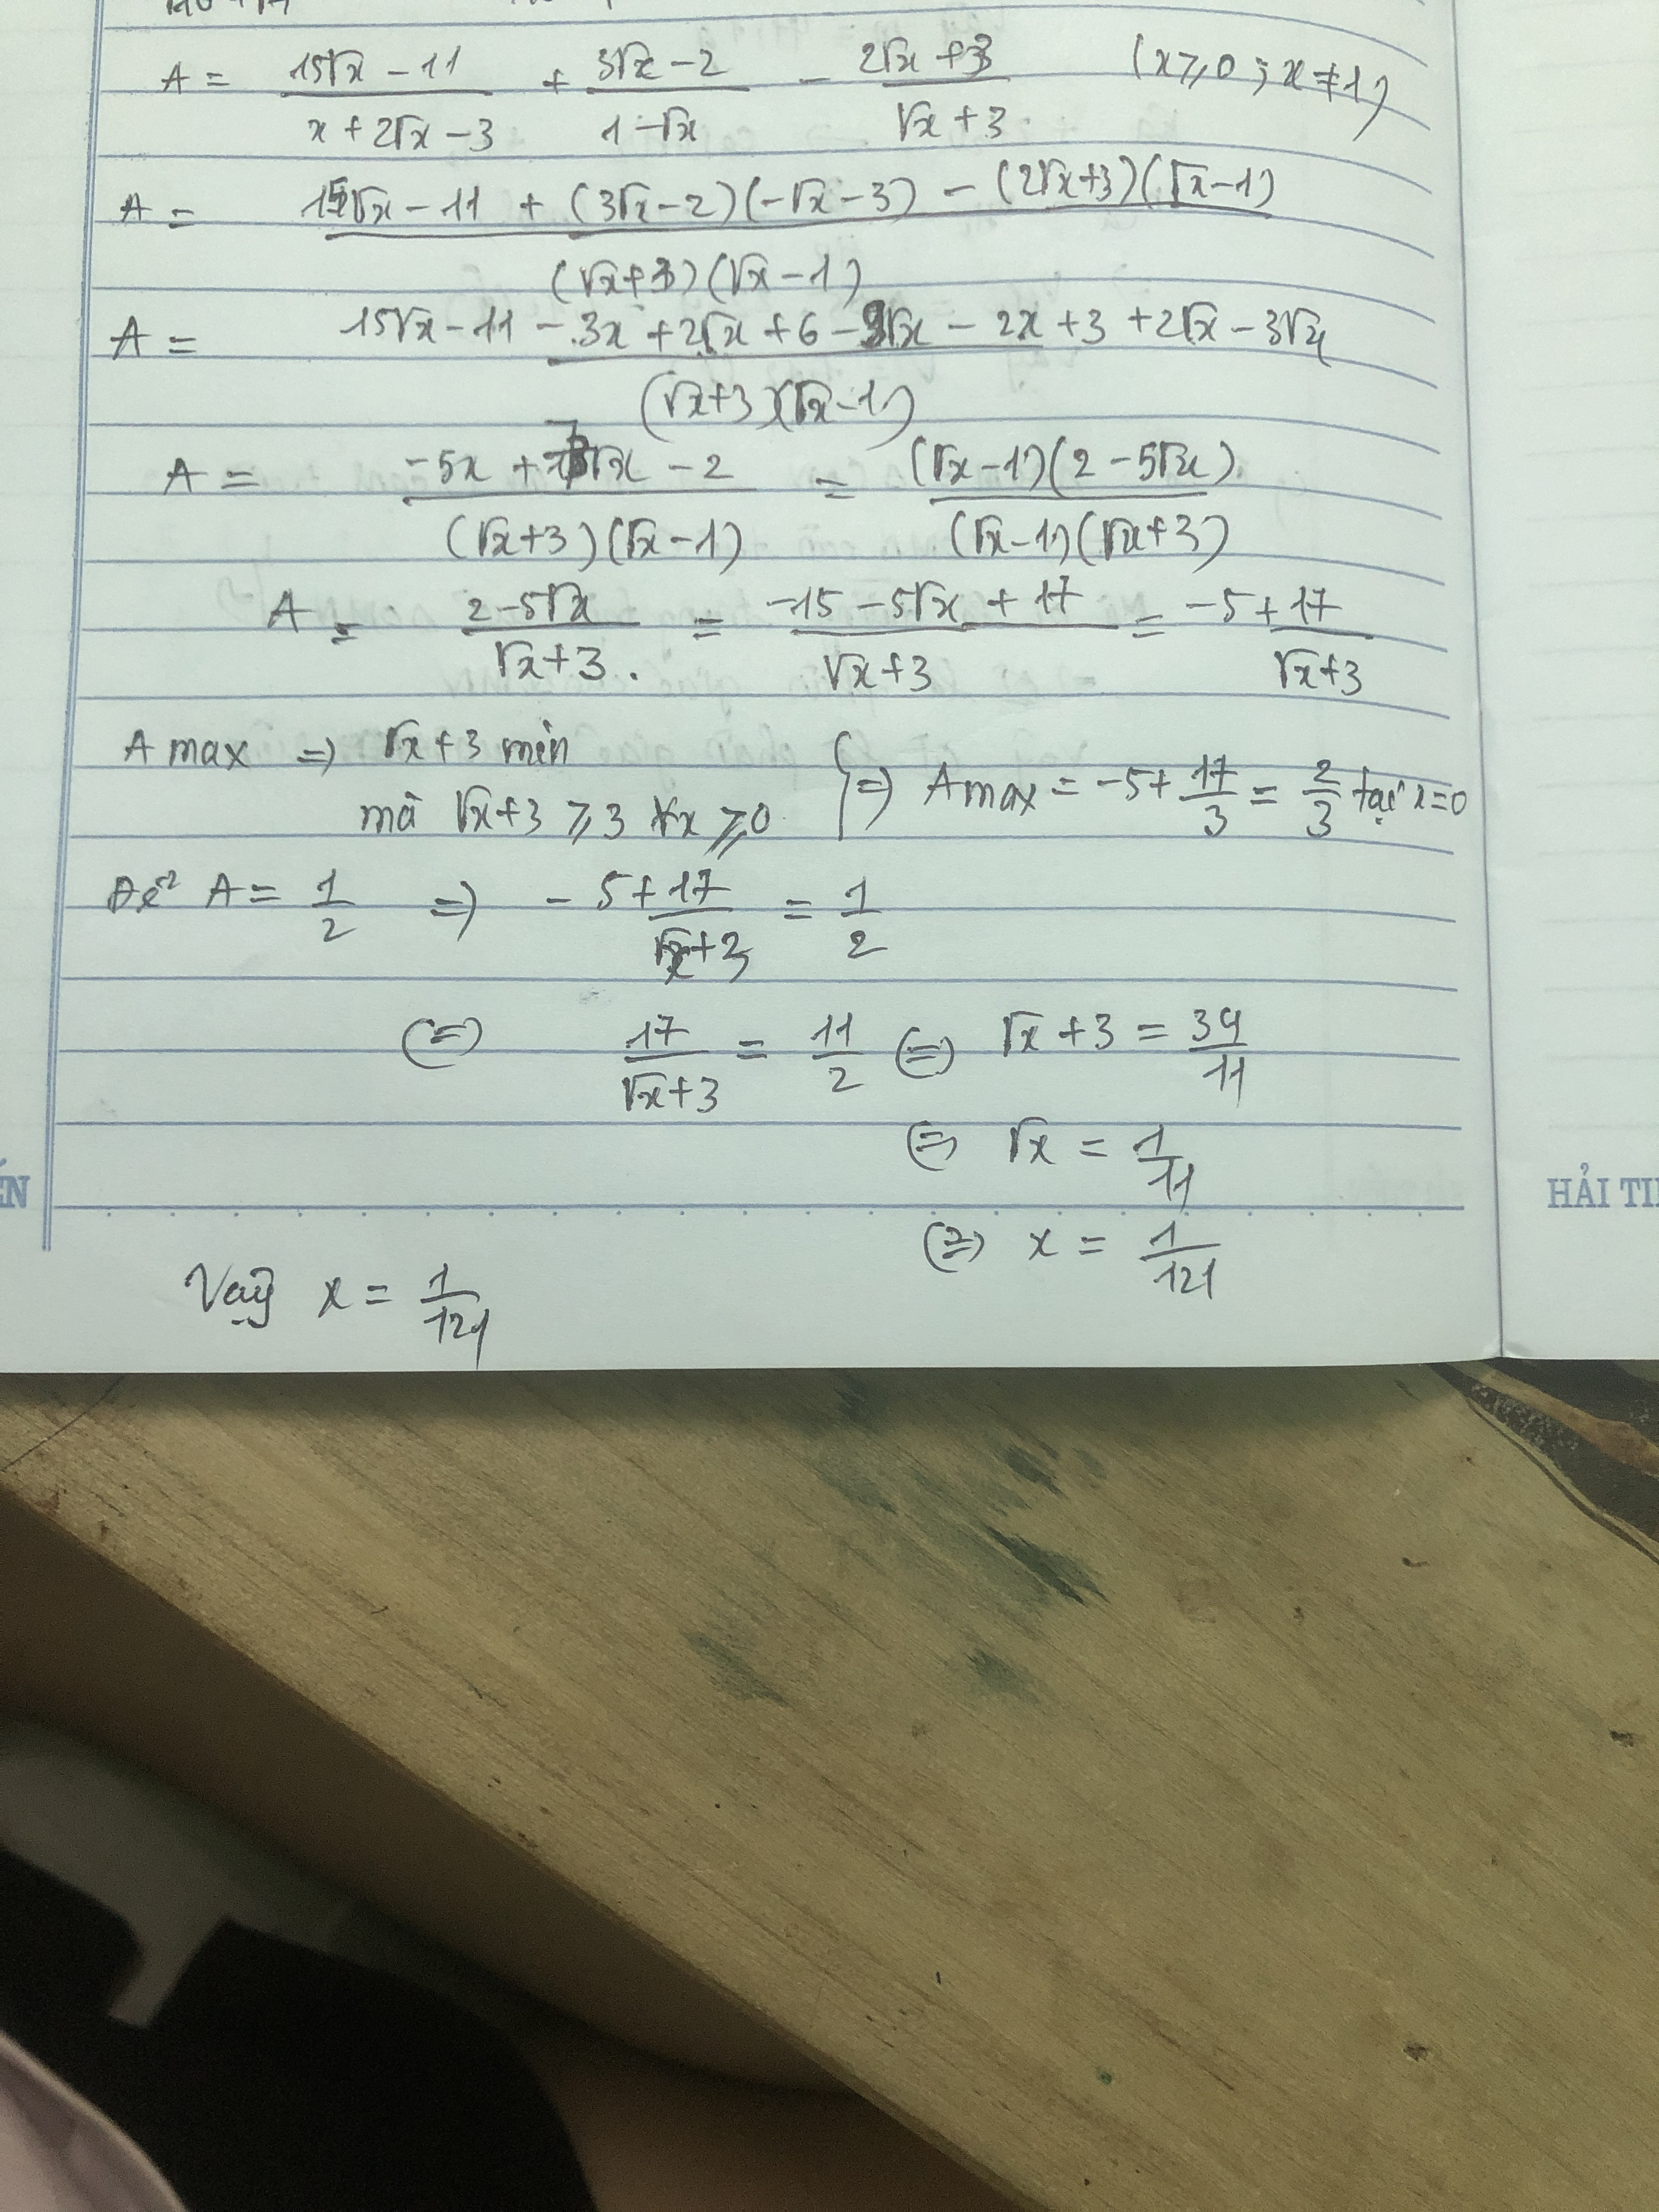 A = (15√x − 11)/(x + 2√x − 3) + (3√x − 2)/(1 − √x) − (2√x + 3)/(√x + 3) (x ⩾ 0 ; x ≠ 1)
A = (15√x − 11 + (3√x − 2)(−√x − 3) − (2√x + 3)(√x − 1))/((√x + 3)(√x − 1))
A = (15√x − 11 − 3x + 2√x + 6 − 9√x − 2x + 3 + 2√x − 3√x)/((√x + 3)(√x − 1))
A = (−5x + 7√x − 2)/((√x + 3)(√x − 1)) = ((√x − 1)(2 − 5√x))/((√x − 1)(√x + 3))
A = (2 − 5√x)/(√x + 3) . = (−15 − 5√x + 17)/(√x + 3) = −5 + 17/(√x + 3)
A max => √x + 3 min
mà √x + 3 ⩾ 3 ∀x ⩾ 0 } => A max = −5 + 17/3 = 2/3 tại x = 0
Để A = 1/2 => −5 + 17/(√x + 3) = 1/2
(=) 17/(√x + 3) = 11/2 (=) √x + 3 = 34/11
(=) √x = 1/11
(=) x = 1/121
Vậy x = 1/121
HẢI TI